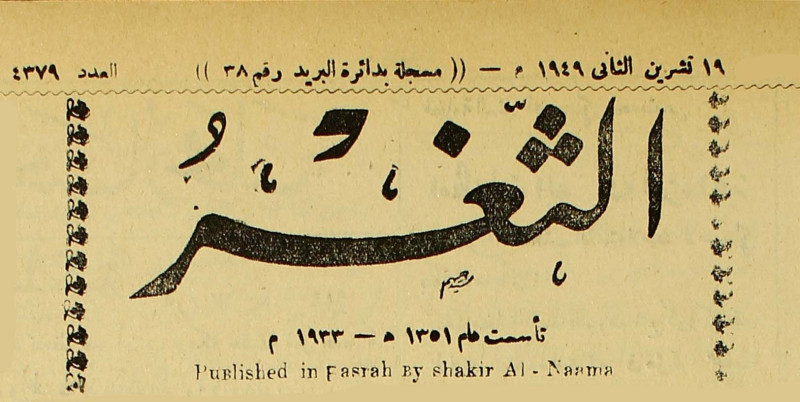 ١٩ تشرين الثانى ١٩٤٩ م — (( مسجلة بدائرة البريد رقم ٣٨ )) العدد ٤٣٧٩
الثَّغْرُ
تأسست عام ١٣٥١ ه — ١٩٣٣ م
Published in Basrah By shakir Al - Naama